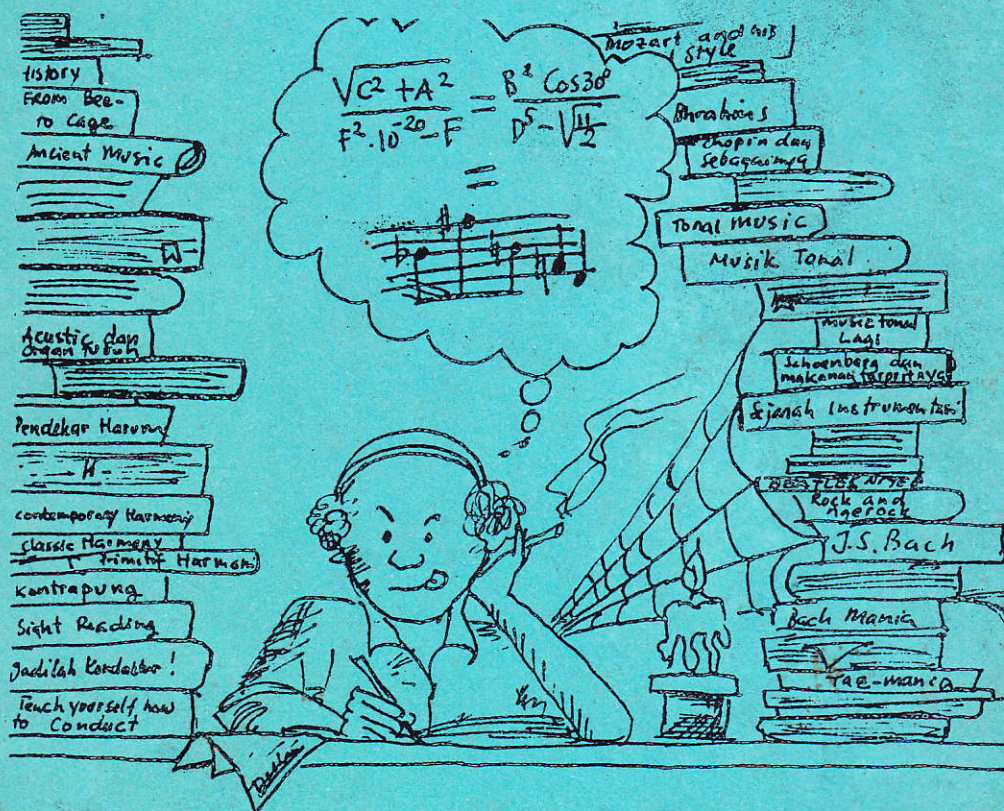 History
From Bee-
to Cage
Ancient Music
Acustic dan
organ tubuh
Pendekar Harum
H
contemporary Harmony
Classic Harmony
Primitif Harmoni
Kontrapung
Sight Reading
Jadilah Kondaktur !
Teach yourself how
to Conduct
√C² + A² / F².10⁻²⁰-F = B² Cos30° / D⁵-√π/2
=
Mozart and his
style
Bhrahms
Chopin dan
sebagainya
Tonal Music
Musik Tonal
Music tonal
Lagi
Schoenberg dan
makanan
Sejarah Instrumentasi
Rock and
Agerock
J.S. Bach
Bach Mania
Tae-mania